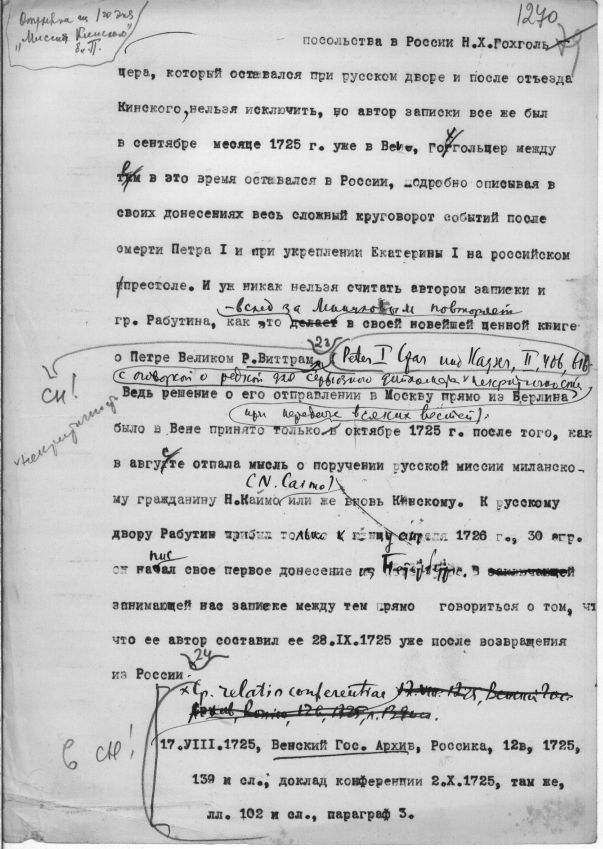 Отрывки из
"Миссии Кинского"
1270
посольства в России Н.Х.Гохголь
цера, который оставался при русском дворе и после отъезда
Кинского, нельзя исключить, но автор записки все же был
в сентябре месяце 1725 г. уже в Вене, Гохгольцер между
тем в это время оставался в России, подробно описывая в
своих донесениях весь сложный круговорот событий после
смерти Петра I и при укреплении Екатерины I на российском
престоле. И уж никак нельзя считать автором записки и
– вслед за Мининковым повторяет
гр. Рабутина, как это делает в своей новейшей ценной книге
23
о Петре Великом Р.Виттрам (Peter I Czar und Kayser, II, 406, 616
с оговоркой о редкой для серьезного дипломата некритичности
СН!
некритичности
Ведь решение о его отправлении в Москву прямо из Берлина
при передаче всяких вестей).
было в Вене принято только в октябре 1725 г. после того, как
в августе отпала мысль о поручении русской миссии миланско-
(N. Caimo)
му гражданину Н.Каймо или же вновь Кинскому. К русскому
двору Рабутин прибыл только к концу апреля 1726 г., 30 апр.
он начал свое первое донесение из Петербург. В заключающей
пис
занимающей нас записке между тем прямо говориться о том, чт
что ее автор составил ее 28.IX.1725 уже после возвращения
24
из России.
x Ср. relatio conferentiae
17.VIII.1725, Венский Гос. Архив, Россика, 12в, 1725,
в СН!
139 и сл., доклад конференции 2.X.1725, там же,
лл. 102 и сл., параграф 3.